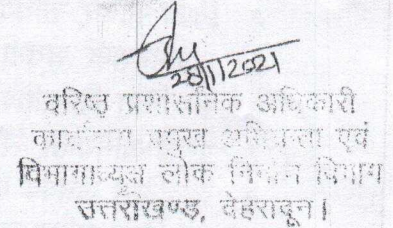 28/1/2021
वरिष्ठ प्रशासनिक अधिकारी
कार्यालय प्रमुख अभियन्ता एवं
विभागाध्यक्ष लोक निर्माण विभाग
उत्तराखण्ड, देहरादून।